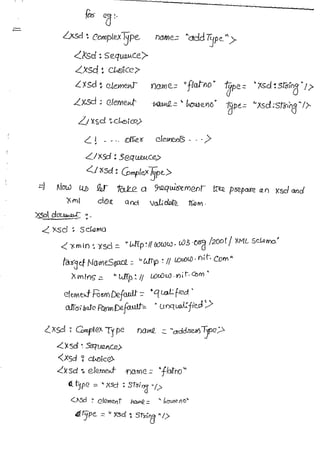 for eg :-
<xsd : complexType name= "addType">
<xsd : sequence>
<xsd : choice>
<xsd : element name= "flatno" type= "xsd:string"/>
<xsd : element name= "houseno" type= "xsd:string"/>
</xsd : choice>
<! - ... other elements - - ->
</xsd : sequence>
</xsd : ComplexType>
=) Now us let take a requirement like prepare an xsd and
xml doc and validate them.
xsd document :.
<xsd : Schema
<xmln : xsd = "http://www.w3.org/2001/XML Schema"
target NameSpace = "http://www.nit.com"
xmlns = "http://www.nit.com"
element Form Default = "qualified"
attribute Form Default = "unqualified">
<xsd : Complex Type name = "addressType>
<xsd : sequence>
<xsd : choice>
<xsd : element name= "flatno"
type = "xsd : string"/>
<xsd : element name= "houseno"
type = "xsd : string"/>